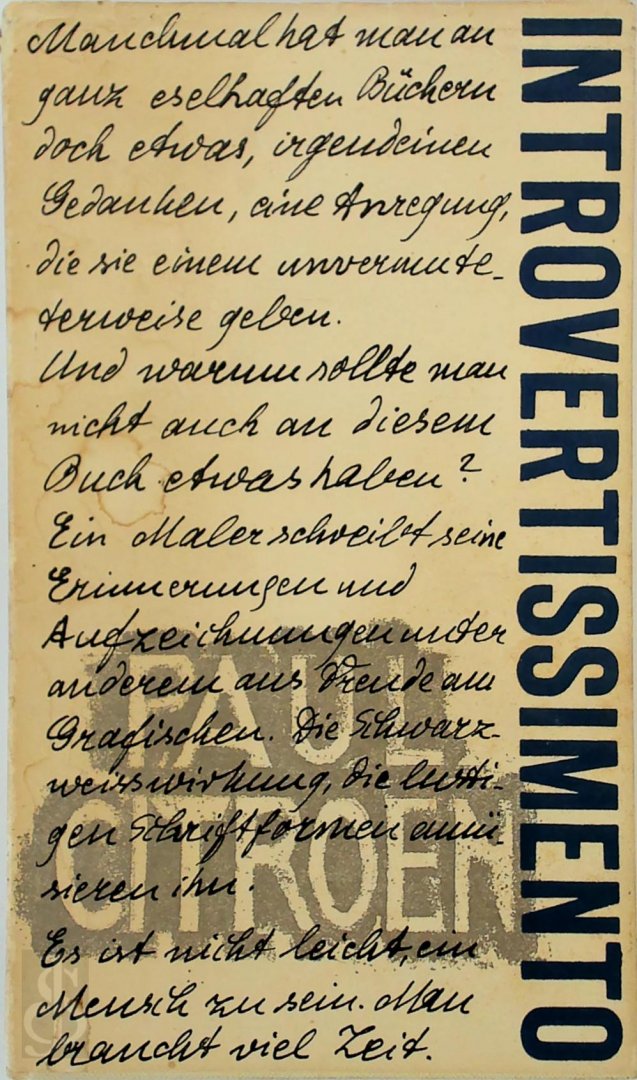 Manchmal hat man an
ganz eselhaften Büchern
doch etwas, irgendeinen
Gedanken, eine Anregung,
die sie einem unvermute-
terweise geben.
Und warum sollte man
nicht auch an diesem
Buch etwas haben?
Ein Maler schreibt seine
Erinnerungen und
Aufzeichnungen unter
anderem aus Freude am
Grafischen. Die Schwarz-
weisswirkung, die lusti-
gen Schriftformen amü-
sieren ihn.
Es ist nicht leicht, ein
Mensch zu sein. Man
braucht viel Zeit.
PAUL
CITROEN
INTROVERTISSIMENTO